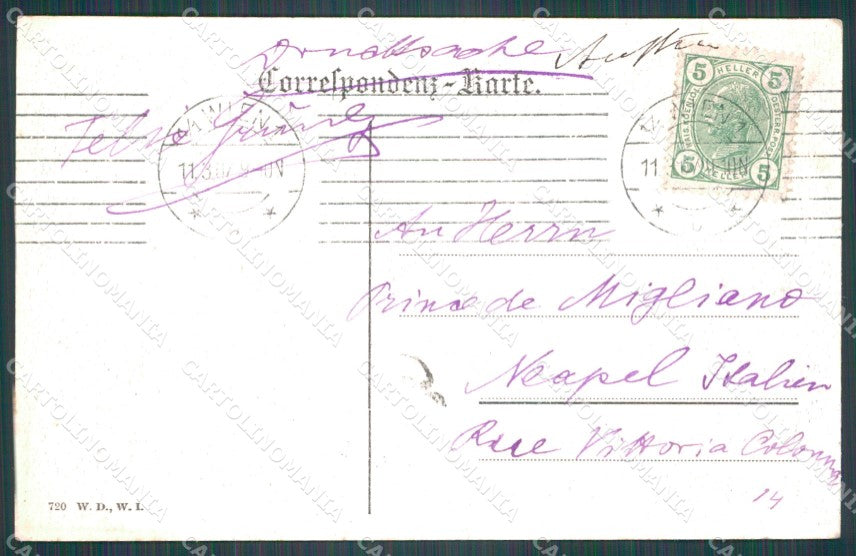 Drucksache Austria
Correspondenz-Karte.
WIEN
11.3.07
5 HELLER 5
5 HELLER 5
WIEN
11
An Herrn
Prince de Migliano
Neapel Italien
Rue Vittoria Colonna
14
720 W. D., W. I.
CARTOLINOMANIA